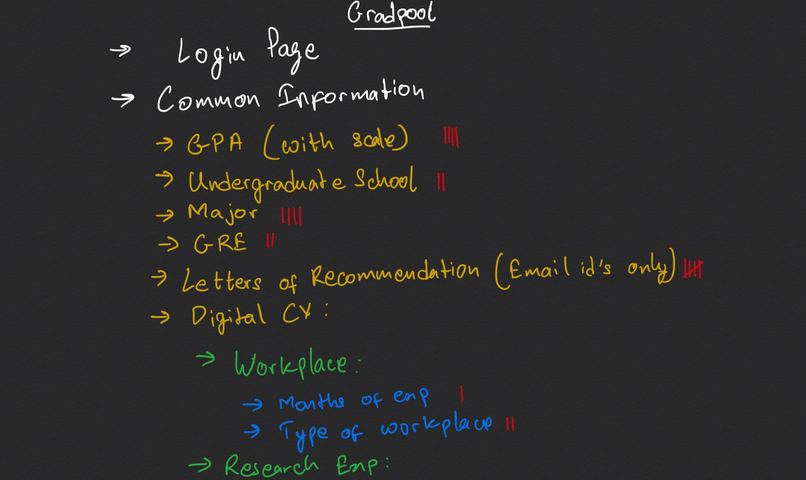 Gradpool
→ Login Page
→ Common Information
→ GPA (with scale) ||||
→ Undergraduate School ||
→ Major ||||
→ GRE ||
→ Letters of Recommendation (Email id's only) 卌
→ Digital CV :
→ Workplace :
→ Months of exp |
→ Type of workplace ||
→ Research Exp :